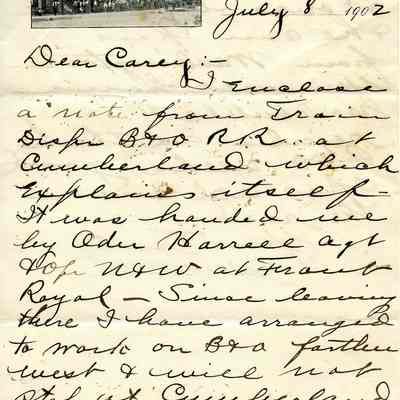 July 8 1902
Dear Carey:-
I Enclose
a note from Train
Dispr B+O RR. at
Cumberland which
Explains itself-
It was handed me
by Oder Harrell agt
+Opr N+W at Front
Royal - Since leaving
there I have arranged
to work on B+O farther
west + will not
stop at Cumberland